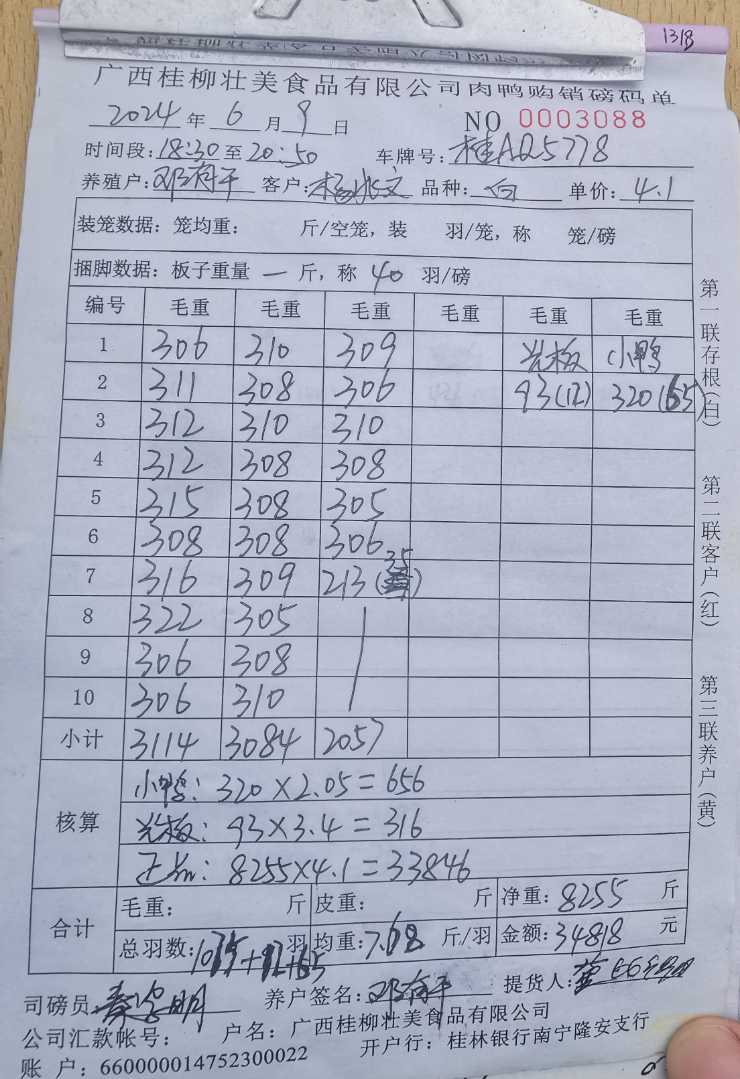 1318
广西桂柳壮美食品有限公司肉鸭购销磅码单
2024 年 6 月 9 日 NO 0003088
时间段: 18:30 至 20:50 车牌号: 桂AQ5778
养殖户: 邓有平 客户: 杨兆文 品种: 白 单价: 4.1
装笼数据: 笼均重: 斤/空笼, 装 羽/笼, 称 笼/磅
捆脚数据: 板子重量 一 斤, 称 40 羽/磅
编号 毛重 毛重 毛重 毛重 毛重 毛重
1 306 310 309 光板 小鸭
2 311 308 306 93(12) 320(65)
3 312 310 310
4 312 308 308
5 315 308 305
6 308 308 306
7 316 309 213(35)
8 322 305
9 306 308
10 306 310
小计 3114 3084 2057
核算
小鸭: 320×2.05=656
光板: 93×3.4=316
正品: 8255×4.1=33846
合计
毛重: 斤 皮重: 斤 净重: 8255 斤
总羽数: 1075+12+65 羽 均重: 7.68 斤/羽 金额: 34818 元
司磅员: 养户签名: 邓有平 提货人:
公司汇款帐号: 户名: 广西桂柳壮美食品有限公司
账 户: 660000014752300022 开户行: 桂林银行南宁隆安支行
第一联存根(白)
第二联客户(红)
第三联养户(黄)